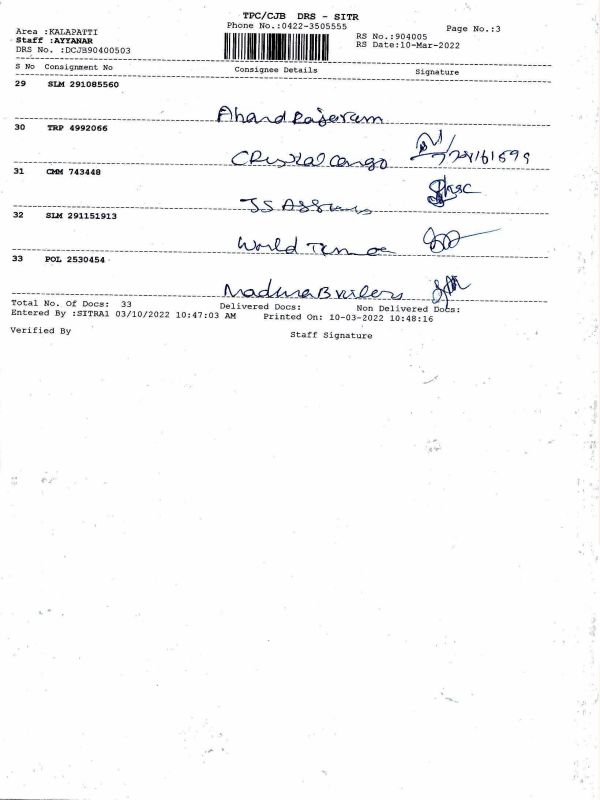 TPC/CJB DRS - SITR
Phone No.:0422-3505555
Page No.:3
Area :KALAPATTI
RS No.:904005
Staff :AYYANAR
RS Date:10-Mar-2022
DRS No. :DCJB90400503
S No Consignment No Consignee Details Signature
29 SLM 291085560
Anand Rajaram
30 TRP 4992066
Crystal Cargo
31 CMM 743448
JS
32 SLM 291151913
World
33 POL 2530454
Madura
Total No. Of Docs: 33 Delivered Docs: Non Delivered Docs:
Entered By :SITRA1 03/10/2022 10:47:03 AM Printed On: 10-03-2022 10:48:16
Verified By Staff Signature